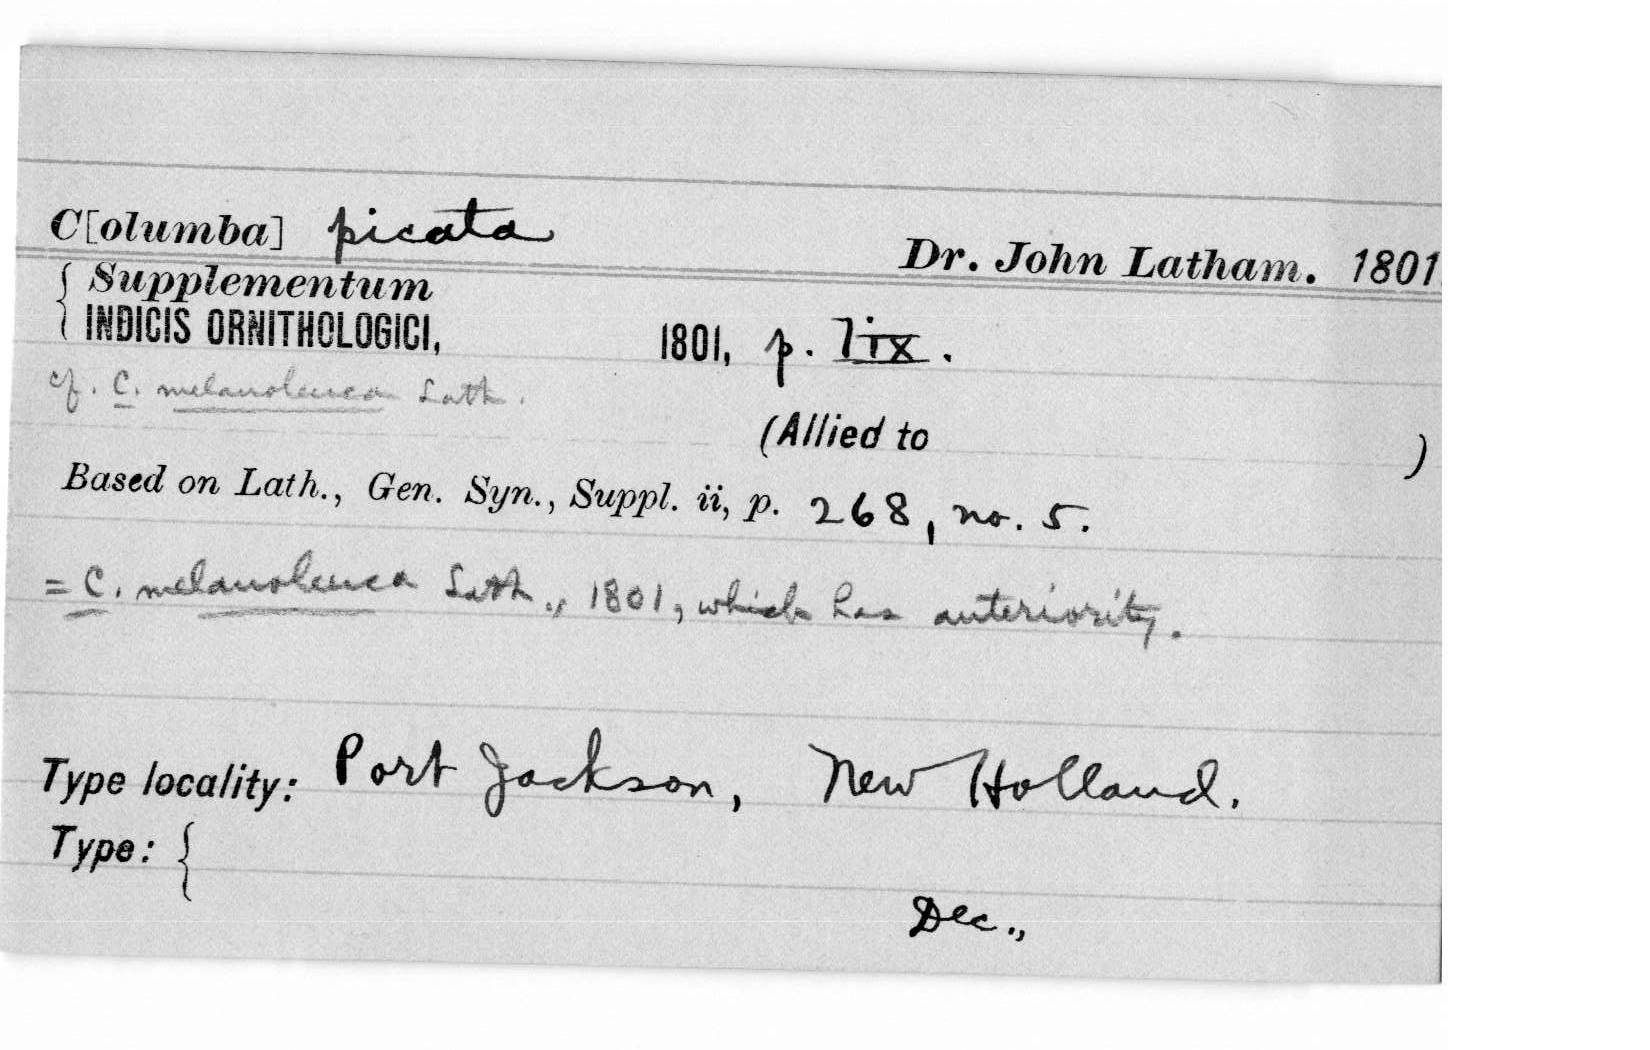 C[olumba] picata
Dr. John Latham. 1801
{ Supplementum
INDICIS ORNITHOLOGICI, 1801, p. lix.
cf. C. melanoleuca Lath.
(Allied to )
Based on Lath., Gen. Syn., Suppl. ii, p. 268, no. 5.
= C. melanoleuca Lath., 1801, which has anteriority.
Type locality: Port Jackson, New Holland.
Type: {
Dec.,